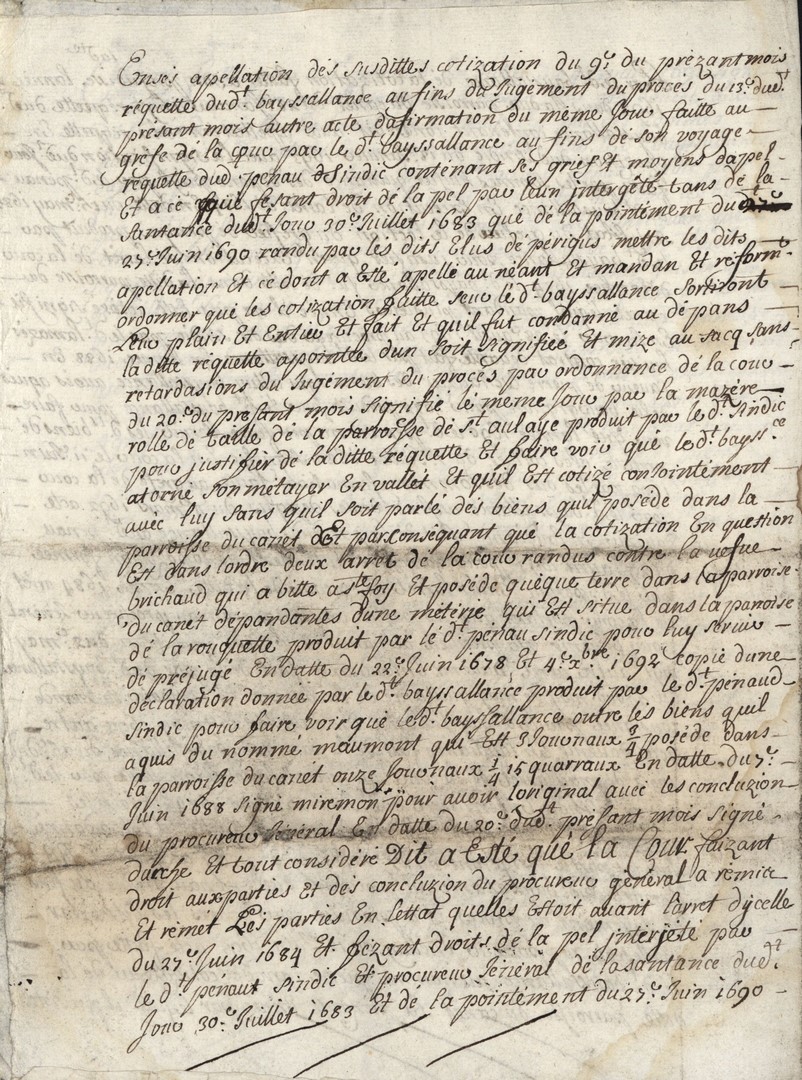 Ensés apellation dés susdittes cotization du 9.e du prézant mois
réquette dud.t bayssallance au fins du Jugément du procés du 13.e dud.t
présant mois autre acte dafirmation du même Jour faitte au
gréfe dé la cour par le d.t bayssallance au fins dé son voyage
réquette dud. pénau Sindic conténant ses grief Et moyens dapel
Et à cé qué fésant droit dé la pel par leun intergêté tans dé la
santance dud.t Jour 30.e Juillet 1683 qué dé la pointément du
27.e Juin 1690 randu par lés dits Elus dé périgus mettre les dits
apellation et cé dont a Esté apellé au néant Et mandan Et réform.
ordonner qué lés cotization faitte seur lé d.t bayssallance sortiront
Leur plain Et Entier Et fait Et quil fut condanné au dépans
la ditte réquette apointée dun soit signifiée Et mize au sacq sans
rétardasions du Jugément du procés par ordonnance dé la cour
du 20.e du présant mois signifié lé même Jour par la mazére
rolle dé taille dé la parroisse dé s.t aulaye produit par lé d.t Sindic
pour justifier dé la ditte réquette Et faire voir qué lé d.t bayss.ce
a torné son métayer En vallét Et quil Est cotizé conJointément
avéc luy sans quil soit parlé dés biens quil poséde dans la
parroisse du canét Et par conséquant qué la cotization En question
Est dans lordre deux arrét dé la cour randus contre la vefue
brichaud qui a bitte a s.te foy Et poséde quéque terre dans la parroise
du canét dépandantes dune métérie qui Est situe dans la parroise
dé la rouquette produit par lé d.t pénau sindic pour luy servir
dé préjugé En datte du 22.e Juin 1678 Et 4.e x.bre 1692 copie dune
déclaration donnée par lé d.t bayssallance produit par lé d.t pénaud
sindic pour faire voir qué lé d.t bayssallance outre lés biens quil
a quis du nommé meumont qui Est 3 Journaux 3/4 poséde dans
la parroisse du canét onze Journaux 1/4 15 quarraux En datte du 7.e
Juin 1688 signé mirémon pour avoir loriginal avéc lés concluzion
du procureur Général En datte du 20.e dud.t présant mois signé
duréche Et tout considéré Dit a Esté qué la Cour faizant
droit aux parties Et dés concluzion du procureur général a rémice
Et rémét Lés parties En lettat quelles Estoit avant larrét dycelle
du 27.e Juin 1684 Et fézant droits dé la pel interjété par
lé d.t pénaut sindic Et procureur Général dé la santance dud.t
Jour 30.e Juillet 1683 Et dé la pointément du 27.e Juin 1690